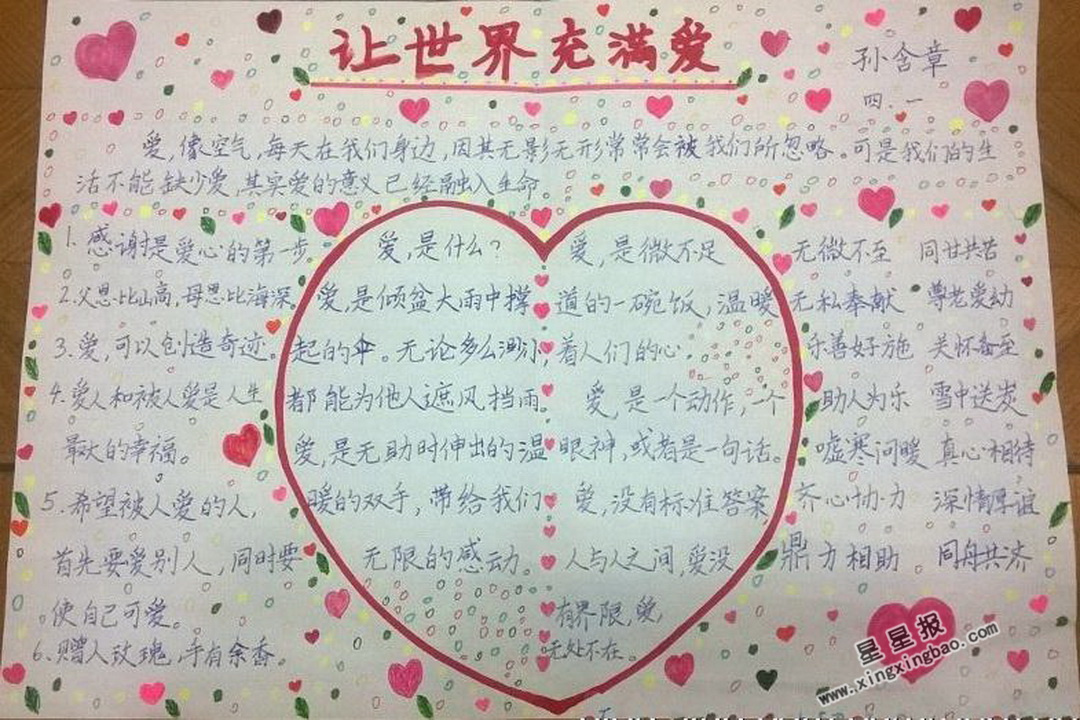 让世界充满爱
孙含章
四.一
爱,像空气,每天在我们身边,因其无影无形常常会被我们所忽略。可是我们的生
活不能缺少爱,其实爱的意义已经融入生命。
1.感谢是爱心的第一步。
2.父恩比山高,母恩比海深。
3.爱,可以创造奇迹。
4.爱人和被人爱是人生
最大的幸福。
5.希望被人爱的人,
首先要爱别人,同时要
使自己可爱。
6.赠人玫瑰,手有余香。
爱,是什么?
爱,是倾盆大雨中撑
起的伞。无论多么渺小,
都能为他人遮风挡雨。
爱,是无助时伸出的温
暖的双手,带给我们
无限的感动。
爱,是微不足
道的一碗饭,温暖
着人们的心。
爱,是一个动作,一个
眼神,或者是一句话。
爱,没有标准答案,
人与人之间,爱没
有界限,爱,
无处不在。
无微不至 同甘共苦
无私奉献 尊老爱幼
乐善好施 关怀备至
助人为乐 雪中送炭
嘘寒问暖 真心相待
齐心协力 深情厚谊
鼎力相助 同舟共济
星星报
www.xingxingbao.com